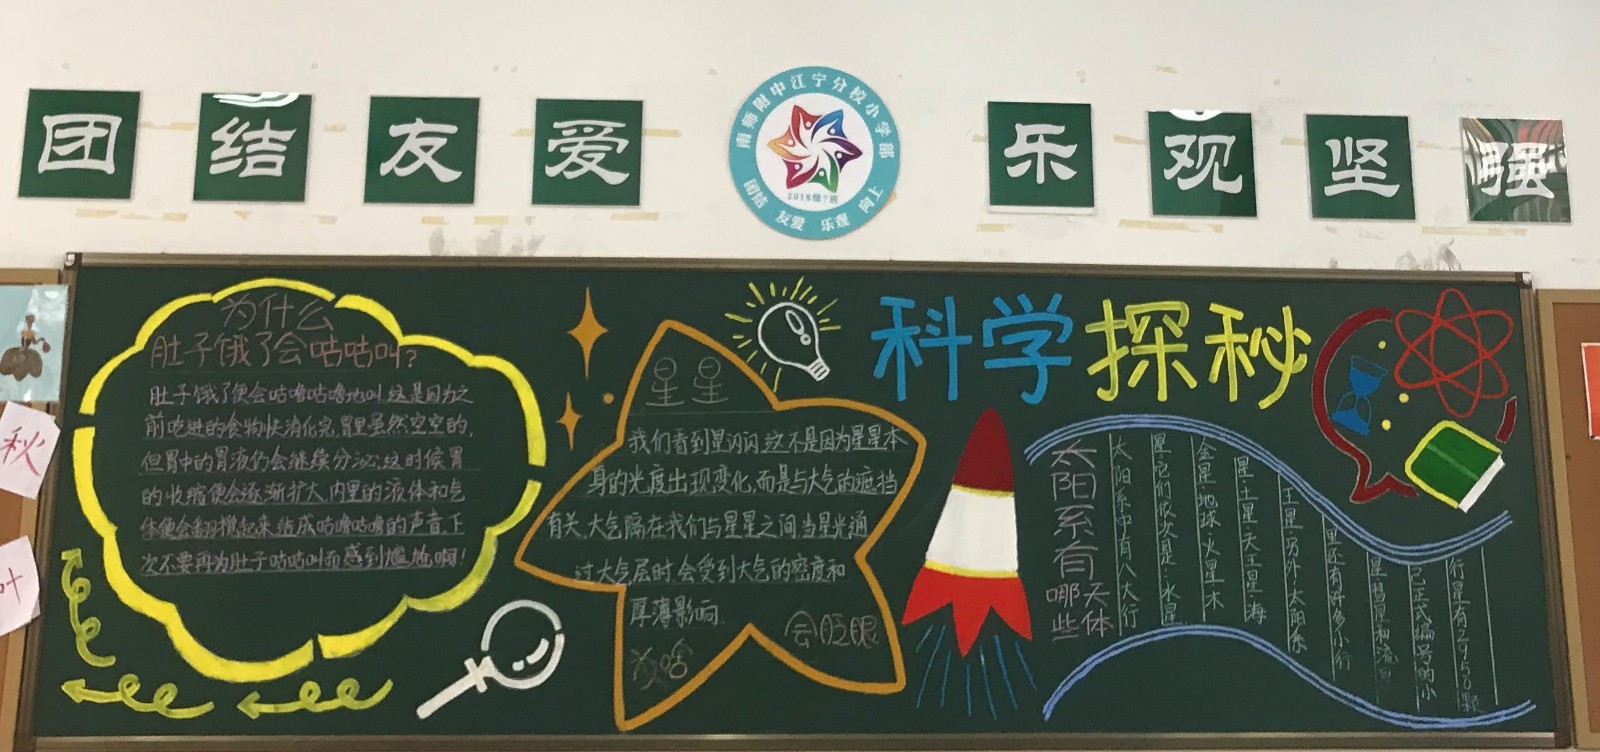 团结友爱
南师附中江宁分校小学部
2018级7班
团结 友爱 乐观 向上
乐观坚强
秋
叶
为什么
肚子饿了会咕咕叫?
肚子饿了便会咕噜咕噜地叫,这是因为之
前吃进的食物快消化完,胃里虽然空空的,
但胃中的胃液仍会继续分泌,这时候胃
的收缩便会逐渐扩大,内里的液体和气
体便会翻搅起来,造成咕噜咕噜的声音,下
次不要再为肚子咕咕叫而感到尴尬啊!
星星
我们看到星闪闪,这不是因为星星本
身的光度出现变化,而是与大气的遮挡
有关,大气隔在我们与星星之间,当星光通
过大气层时,会受到大气的密度和
厚薄影响.
会眨眼
为啥
科学探秘
太阳系有
哪些
天体
太阳系中有八大行
星,它们依次是:水星
金星、地球、火星、木
星、土星、天王星、海
王星,另外,太阳系
里还有许多小行
星、彗星和流星
已正式编号的小
行星有2950颗